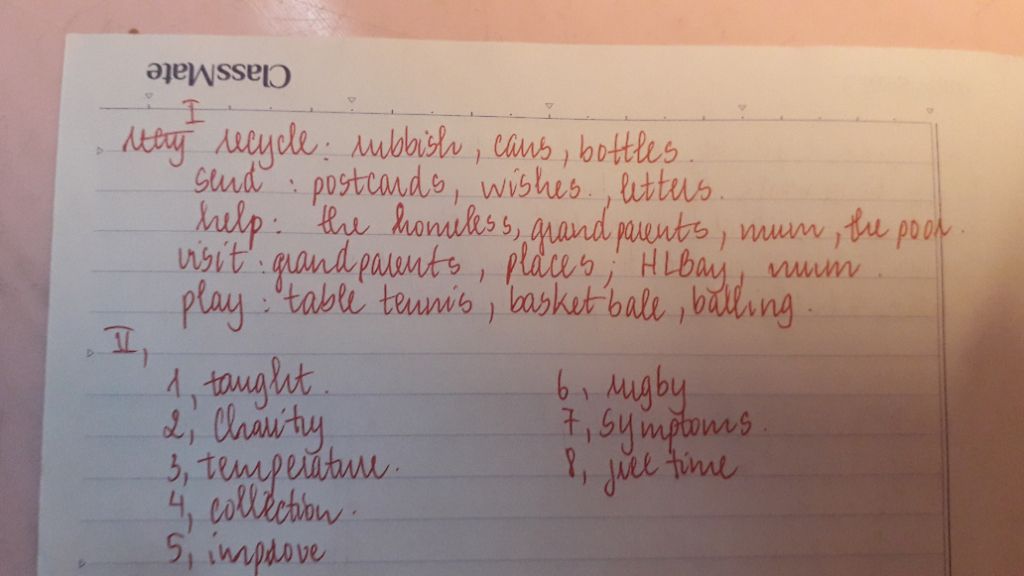 ClassMate
I
recycle: rubbish, cans, bottles.
send : postcards, wishes, letters.
help: the homeless, grandparents, mum, the poor.
visit: grandparents, places, HLBay, mum.
play: table tennis, basketball, balling.
II,
1, taught.
2, Charity
3, temperature.
4, collection.
5, improve
6, rugby
7, symptoms.
8, free time